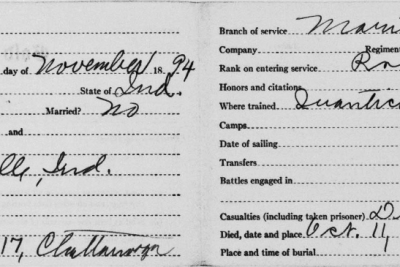 day of November 1894
State of Ind.
Married? No
and
lle, Ind.
17, Chattanooga
Branch of service
Company Regiment
Rank on entering service
Honors and citations
Where trained Quantic
Camps
Date of sailing
Transfers
Battles engaged in
Casualties (including taken prisoner) D
Died, date and place Oct. 11,
Place and time of burial